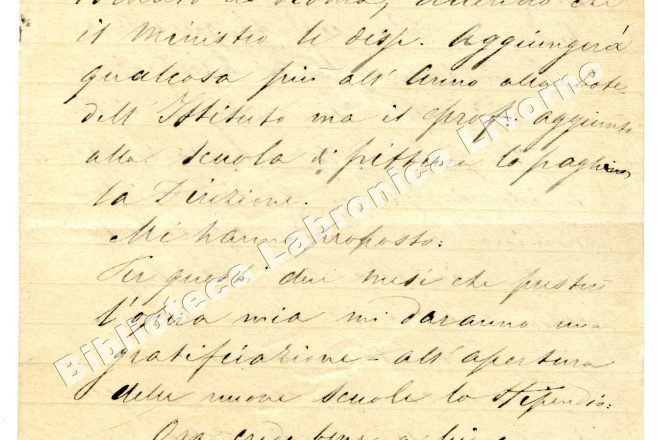 il Ministro le disp. Aggiungerà
qualcosa più all'Anno alla dote
dell'Istituto ma il Prof. aggiunto
alla Scuola di pittura lo paghino
la Direzione.
Mi hanno proposto:
Per questi due mesi che presterò
l'opera mia mi daranno una
gratificazione - all'apertura
delle nuove scuole lo Stipendio:
Ora credo bene
Biblioteca Labronica Livorno